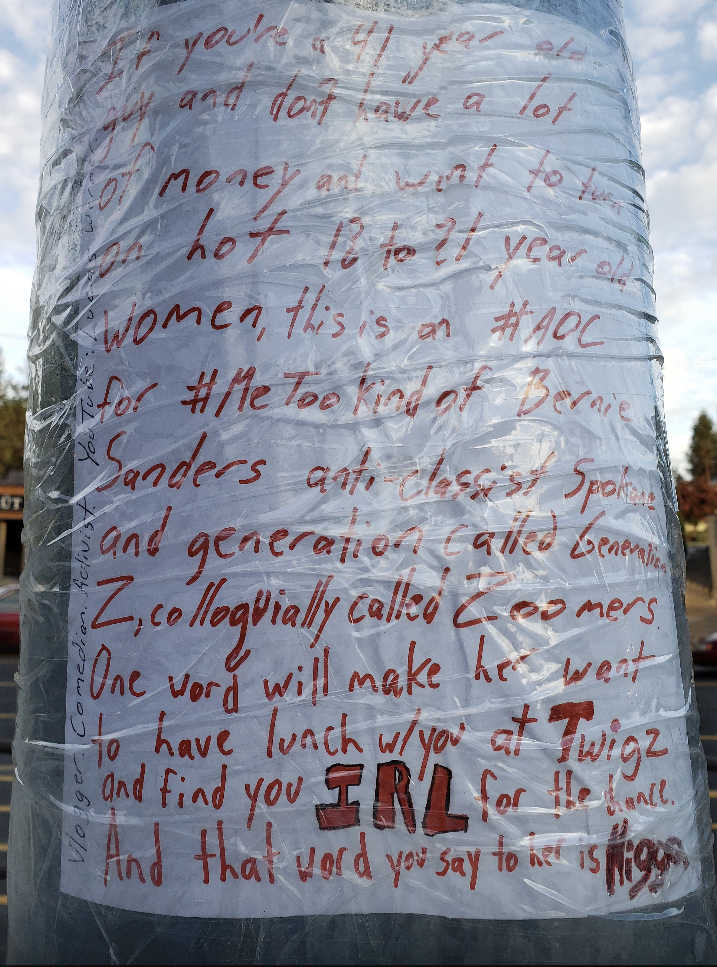 If you're a 41 year old
guy and don't have a lot
of money and want to turn
on hot 18 to 21 year old
women, this is an #AOC
for #MeToo kind of Bernie
Sanders anti-classist Spokane
and generation called Generation
Z, colloquially called Zoomers.
One word will make her want
to have lunch w/you at Twigz
and find you IRL for the chance.
And that word you say to her is
Vlogger. Comedian. Activist YouTube: